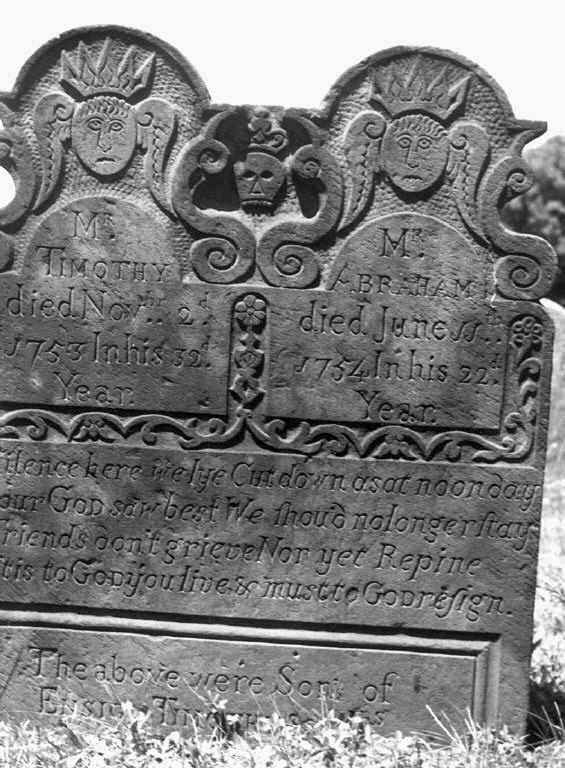 Mr.
TIMOTHY
died Novbr. 2d.
1753 In his 32d.
Year.
MR.
ABRAHAM
died June 11th.
1754 In his 22d.
Year.
ilence here we lye Cut down as at noon day
our GOD saw best We shou'd no longer stay
friends don't grieve Nor yet Repine
tis to GOD you live & must to GOD resign.
The above were Sons of